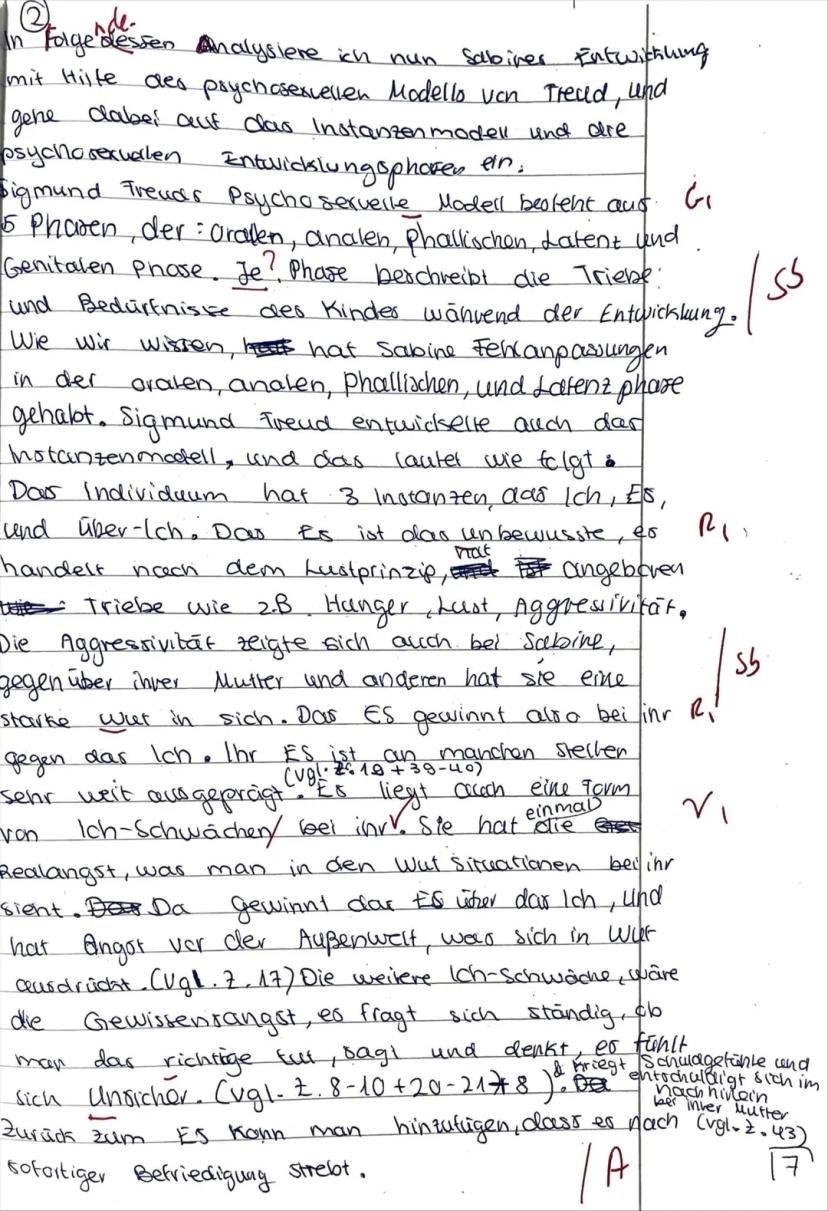 ②
In Folgedessen Analysiere ich nun Sabines Entwicklung
nde.
mit Hilfe des psychosexuellen Modells von Freud, und
gehe dabei auf das Instanzenmodell und die
psychosexuellen Entwicklungsphasen ein.
Sigmund Freuds Psychosexuelle Modell besteht aus G,
5 Phasen, der: oralen, analen, Phallischen, Latenz und
Genitalen Phase. Je? Phase beschreibt die Triebe
und Bedürfnisse des Kindes während der Entwicklung. / Sb
Wie wir wissen, hat Sabine Fehlanpassungen
in der oralen, analen, Phallischen, und Latenzphase
gehabt. Sigmund Freud entwickelte auch das
Instanzenmodell, und das lautet wie folgt:
Das Individuum hat 3 Instanzen, das Ich, Es,
und Über-Ich. Das Es ist das unbewusste, es R,
handelt nach dem Lustprinzip, hat angeboren
Triebe wie z.B. Hunger, Lust, Aggressivität.
Die Aggressivität zeigte sich auch bei Sabine, / Sb
gegenüber ihrer Mutter und anderen hat sie eine
starke wut in sich. Das ES gewinnt also bei ihr R,
gegen das Ich. Ihr ES ist an manchen stellen
sehr weit ausgeprägt (vgl. Z. 19 + 39-40). Es liegt auch eine Form V,
von Ich-Schwächen/ bei ihr √. Sie hat einmal die
Realangst, was man in den Wut situationen bei ihr
sieht. Da gewinnt das ES über das Ich, und
hat Angst vor der Außenwelt, was sich in Wut
ausdrückt. (Vgl. Z. 17) Die weitere Ich-Schwäche, wäre
die Gewissensangst, es fragt sich ständig, ob
man das richtige tut, sagt und denkt, es fühlt
sich Unsicher. (vgl. Z. 8-10 + 20-21 + 8) & kriegt Schuldgefühle und
entschuldigt sich im
nachhinein
bei ihrer Mutter
(vgl. Z. 43)
Zurück zum ES kann man hinzufügen, dass es nach
sofortiger Befriedigung strebt. / A
7